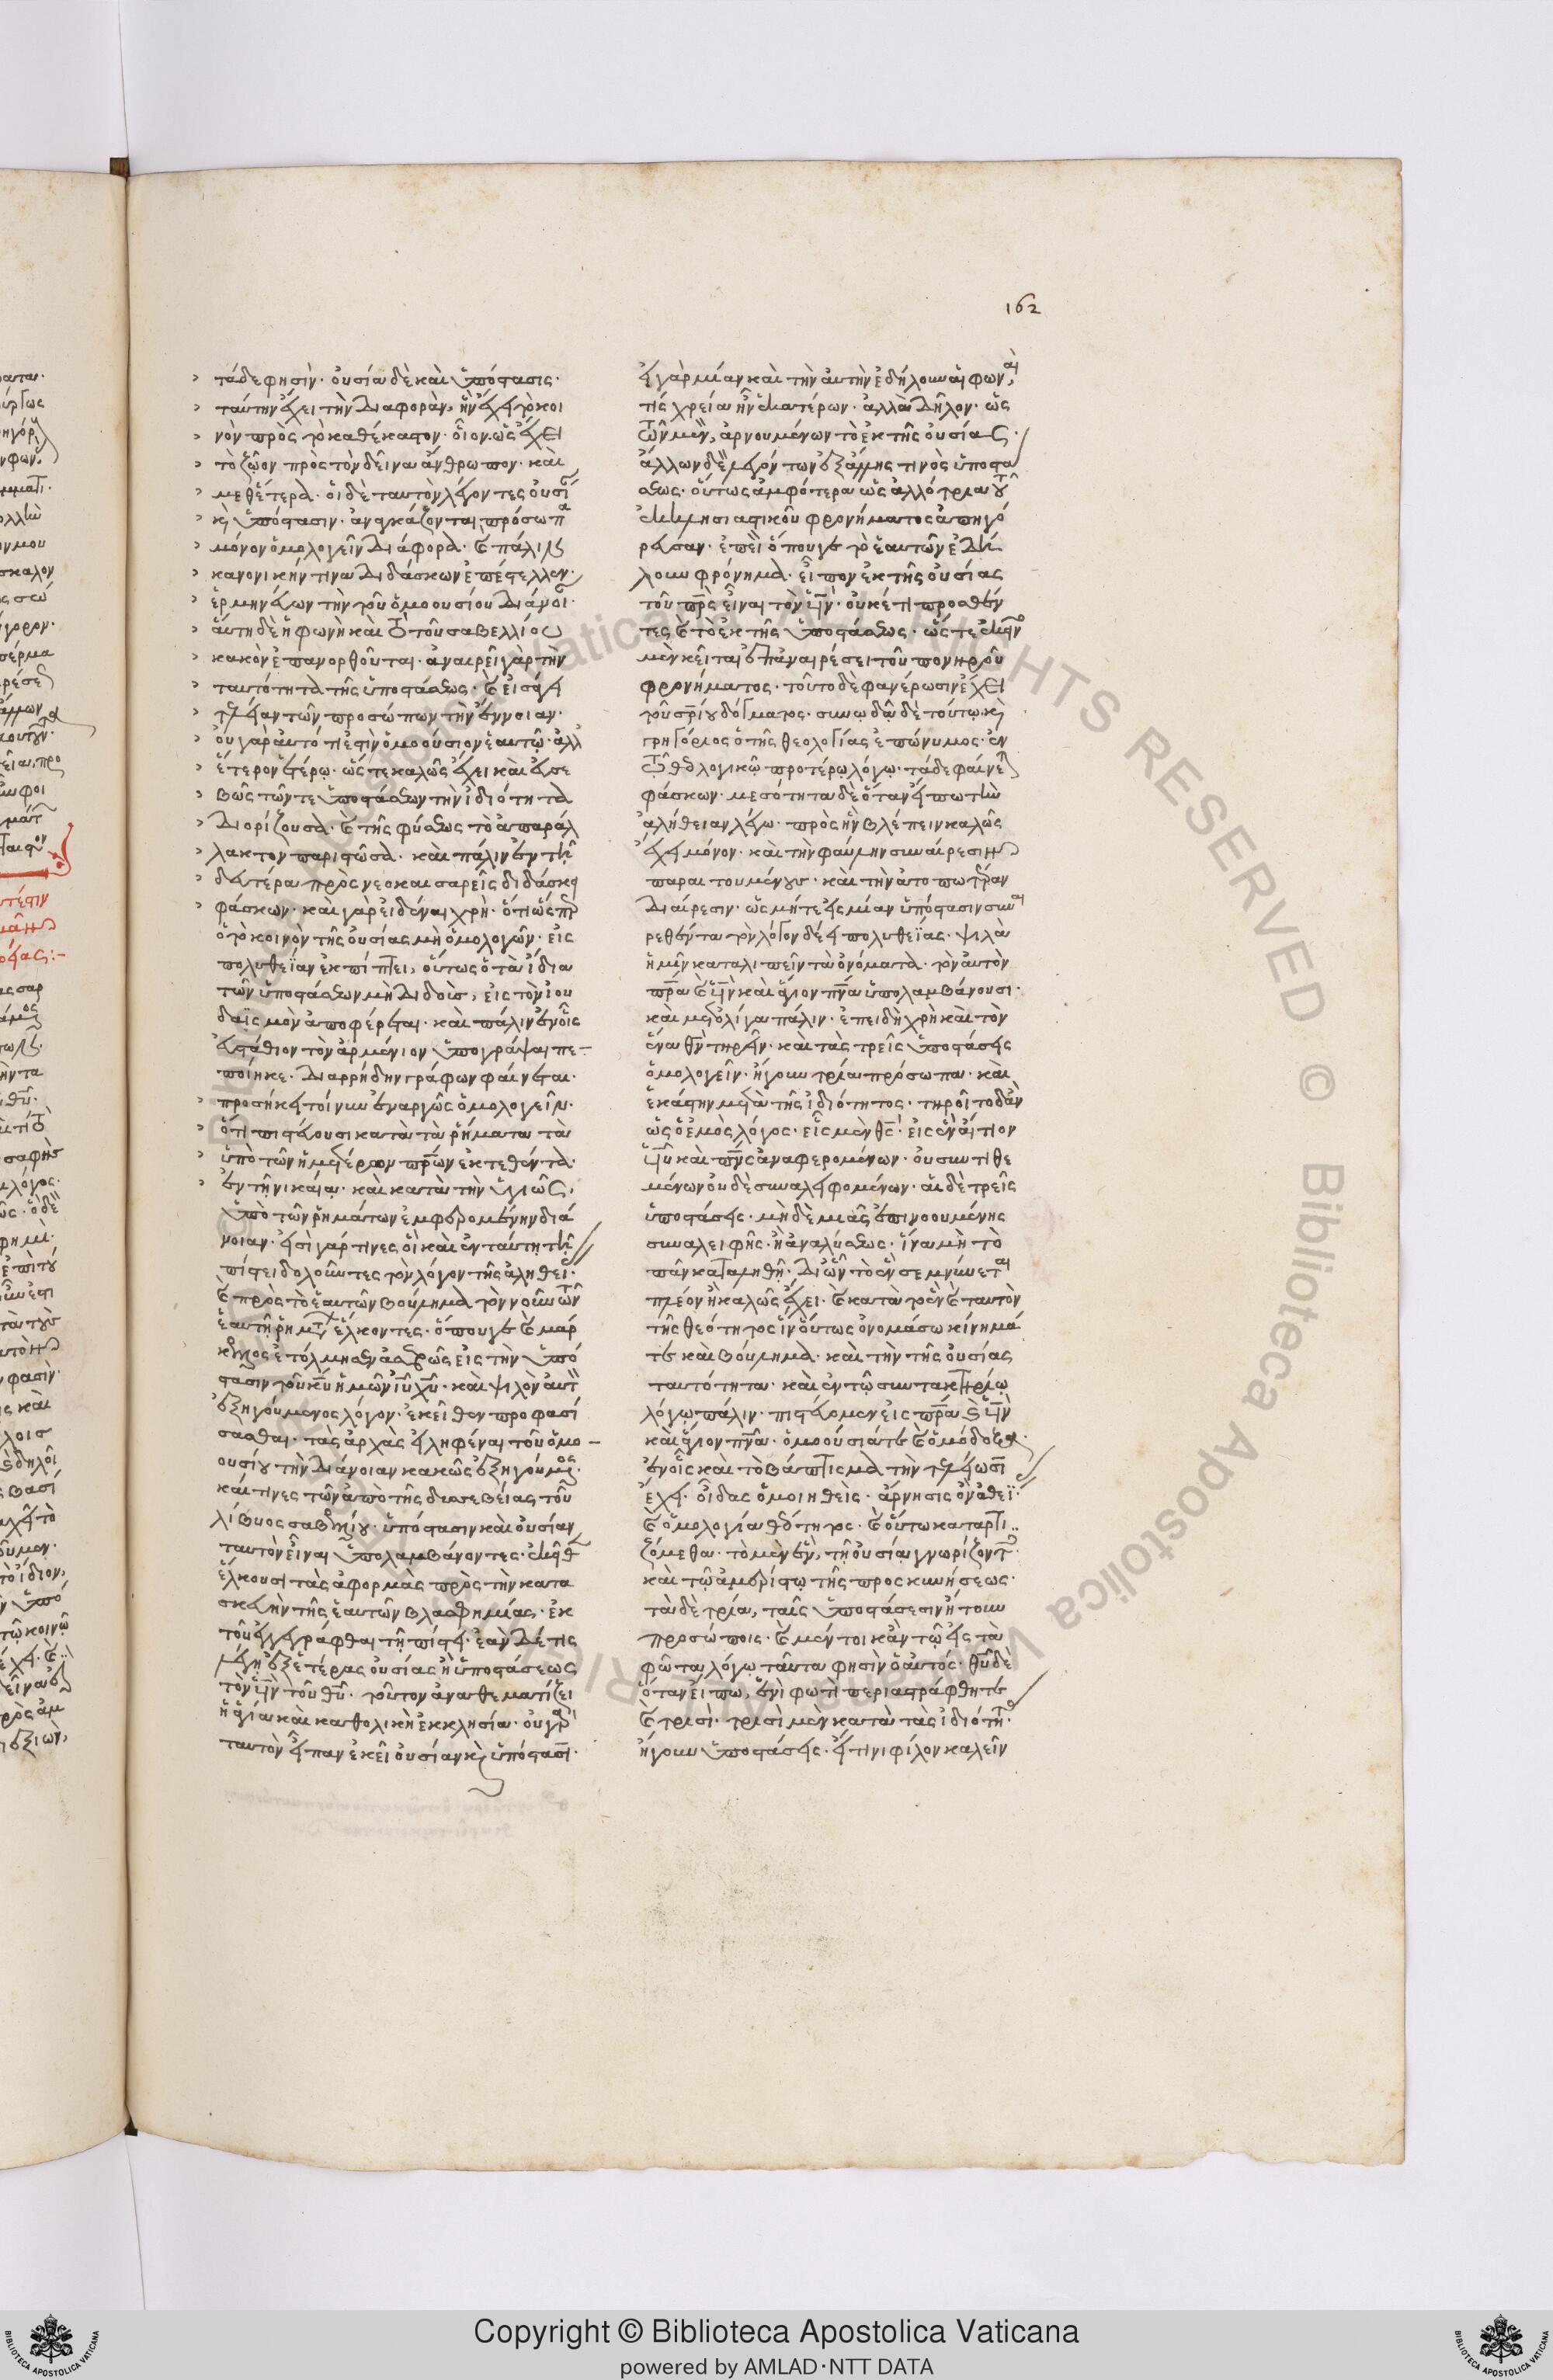 162
τάδε φησίν· οὐσία δὲ καὶ ὑπόστασις·
ταύτην ἔχει τὴν διαφορὰν, ἣν ἔχει τὸ κοι
νὸν πρὸς τὸ καθέκαστον· οἷον ὡς ἔχει
τὸ ζῷον πρὸς τὸν δεῖνα ἄνθρωπον· καὶ
μεθ' ἕτερα· οἱ δὲ ταυτὸν λέγοντες οὐσί
κὶ ὑπόστασιν· ἀναγκάζονται πρόσωπα
μόνον ὁμολογεῖν διάφορα· καὶ πάλιν
κανονικήν τινα διδάσκων ἐπέστελλεν·
ἑρμηνεύων τὴν τοῦ ὁμοουσίου διάνοι·
αὕτη δὲ ἡ φωνὴ καὶ τὸ τοῦ σαβελλίου
κακὸν ἐπανορθοῦται· ἀναιρεῖ γὰρ τὴν
ταυτότητα τῆς ὑποστάσεως· καὶ εἰσάγει
τελείαν τῶν προσώπων τὴν ἔννοιαν·
οὐ γὰρ αὐτό τί ἐστιν ὁμοούσιον ἑαυτῷ· ἀλλ'
ἕτερον ἑτέρῳ· ὥστε καλῶς ἔχει καὶ εὐσε
βῶς τῶν τε ὑποστάσεων τὴν ἰδιότητα
διορίζουσα· καὶ τῆς φύσεως τὸ ἀπαράλ
λακτον παριστῶσα· καὶ πάλιν ἐν τῇ
δευτέρα πρὸς νεοκαισαρεῖς διδάσκει
φάσκων· καὶ γὰρ εἰδέναι χρὴ· ὅτι ὥσπερ
ὁ τὸ κοινὸν τῆς οὐσίας μὴ ὁμολογῶν· εἰς
πολυθεΐαν ἐκπίπτει, οὕτως ὁ τὰ ἴδια
τῶν ὑποστάσεων μὴ διδοὺς, εἰς τὸν ἰου
δαϊσμὸν ἀποφέρεται· καὶ πάλιν ἐν οἷς
εὐστάθιον τὸν ἀρμένιον ὑπογράψαι πε
ποίηκε· διαρρήδην γράφων φαίνεται·
προσήκει τοίνυν ἐναργῶς ὁμολογεῖν·
ὅτι πιστεύουσι κατὰ τὰ ῥήματα τὰ
ὑπὸ τῶν ἡμετέρων πρων ἐκτεθέντα·
ἐν τῇ νικαία· καὶ κατὰ τὴν ὑγιῶς,
ὑπὸ τῶν ῥημάτων ἐμφερομένην διά
νοιαν· εἰσὶ γάρ τινες οἳ καὶ ἐν ταύτῃ τῇ
πίστει δολοῦντες τὸν λόγον τῆς ἀληθεί·
καὶ πρὸς τὸ ἑαυτῶν βούλημα τὸν νοῦν τῶν
ἕλκοντες· ὅπου γε καὶ μάρ
κελλος ἐτόλμησεν ἀσεβῶς εἰς τὴν ὑπό
στασιν τοῦ κυ ἡμῶν ιυ χυ· καὶ ψιλὸν αὐτὸν
ἐξηγούμενος λόγον· ἐκεῖθεν προφασί
σασθαι· τὰς ἀρχὰς εἰληφέναι τοῦ ὁμο
ουσίου τὴν διάνοιαν κακῶς ἐξηγούμενος·
καί τινες τῶν ἀπὸ τῆς δυσσεβείας τοῦ
λίβυος σαβελλίου· ὑπόστασιν καὶ οὐσίαν
ταυτὸν εἶναι ὑπολαμβάνοντες· ἐκεῖθεν
ἕλκουσι τὰς ἀφορμὰς πρὸς τὴν κατα
σκευὴν τῆς ἑαυτῶν βλασφημίας· ἐκ
τοῦ ἐγγεγράφθαι τῇ πίστει· ἐὰν δέ τις
λέγῃ ἐξ ἑτέρας οὐσίας ἢ ὑποστάσεως
τὸν υν τοῦ θυ· τοῦτον ἀναθεματίζει
ἡ ἁγία καὶ καθολικὴ ἐκκλησία· οὐ γὰρ
ταυτὸν εἶπαν ἐκεῖ οὐσίαν κὶ ὑπόστασιν·
εἰ γὰρ μίαν καὶ τὴν αὐτὴν ἐδήλουν αἱ φωναὶ,
τίς χρεία ἦν ἑκατέρων· ἀλλὰ δῆλον· ὡς
τῶν μὲν, ἀρνουμένων τὸ ἐκ τῆς οὐσίας·
ἄλλων δὲ λεγόντων ἐξ ἄλλης τινὸς ὑποστά
σεως· οὕτως ἀμφότερα ὡς ἀλλότρια τοῦ
ἐκκλησιαστικοῦ φρονήματος ἀπηγό
ρευσαν· ἐπεὶ ὅπου γε τὸ ἑαυτῶν ἐδή
λουν φρόνημα· εἶπον ἐκ τῆς οὐσίας
τοῦ πρς εἶναι τὸν υν· οὐκέτι προσθέν
τες καὶ τὸ ἐκ τῆς ὑποστάσεως· ὥστε ἐκεῖνο
μὲν κεῖται ἐπ' ἀναιρέσει τοῦ πονηροῦ
φρονήματος· τοῦτο δὲ φανέρωσιν ἔχει
τοῦ σρίου δόγματος· συνῳδᾷ δὲ τούτῳ κὶ
γρηγόριος ὁ τῆς θεολογίας ἐπώνυμος· ἐν
τῷ θεολογικῷ προτέρῳ λόγῳ· τάδε φαίνε
φάσκων· μεσότητα δὲ ὅταν εἴπω τὴν
ἀλήθειαν λέγω· πρὸς ἣν βλέπειν καλῶς
ἔχει μόνον· καὶ τὴν φαύλην συναίρεσιν
παραιτουμένους· καὶ τὴν ἀτοπωτέραν
διαίρεσιν· ὡς μήτε εἰς μίαν ὑπόστασιν συναι
ρεθέντα τὸν λόγον δέει πολυθεΐας· ψιλὰ
ἡμῖν καταλιπεῖν τὰ ὀνόματα· τὸν αὐτὸν
πρα καὶ υν καὶ ἅγιον πνα ὑπολαμβάνουσι·
καὶ μετ' ὀλίγα πάλιν· ἐπειδὴ χρὴ καὶ τὸν
ἕνα θν τηρεῖν· καὶ τὰς τρεῖς ὑποστάσεις
ὁμολογεῖν· ἤγουν τρία πρόσωπα· καὶ
ἑκάστην μετὰ τῆς ἰδιότητος· τηροῖτο δ' ἂν
ὡς ὁ ἐμὸς λόγος· εἷς μὲν θς· εἰς ἓν αἴτιον
υυ καὶ πνς ἀναφερομένων· οὐ συντιθε
μένων οὐδὲ συναλειφομένων· αἱ δὲ τρεῖς
ὑποστάσεις· μηδὲ μιᾶς ἐπινοουμένης
συναλειφῆς· ἢ ἀναλύσεως· ἵνα μὴ τὸ
πᾶν καταλυθῇ· δι' ὧν τὸ ἓν σεμνύνεται
πλέον ἢ καλῶς ἔχει· καὶ κατὰ τὸ ἓν καὶ ταυτὸν
τῆς θεότητος ἵν' οὕτως ὀνομάσω κίνημά
τε καὶ βούλημα· καὶ τὴν τῆς οὐσίας
ταυτότητα· καὶ ἐν τῷ συντακτηρίῳ
λόγῳ πάλιν· πιστεύομεν εἰς πρα καὶ υν
καὶ ἅγιον πνα· ὁμοούσιά τε καὶ ὁμόδοξα·
ἐν οἷς καὶ τὸ βάπτισμα τὴν τελείωσιν
ἔχει· οἶδας ὁ μυηθεὶς· ἄρνησις ὂν ἀθεΐ·
καὶ ὁμολογία θεότητος· καὶ οὕτω καταρτι
ζόμεθα· τὸ μὲν ἓν, τῇ οὐσίᾳ γνωρίζοντες·
καὶ τῷ ἀμερίστῳ τῆς προσκυνήσεως·
τὰ δὲ τρία, ταῖς ὑποστάσεσιν ἤτουν
προσώποις· καὶ μέντοι κἀν τῷ εἰς τὰ
φῶτα λόγῳ ταῦτα φησὶν ὁ αὐτός· θυ δὲ
ὅταν εἴπω, ἑνὶ φωτὶ περιαστράφθητε
καὶ τρισί· τρισὶ μὲν κατὰ τὰς ἰδιότητας·
ἤγουν ὑποστάσεις· εἴ τινι φίλον καλεῖν
Copyright © Biblioteca Apostolica Vaticana
powered by AMLAD·NTT DATA